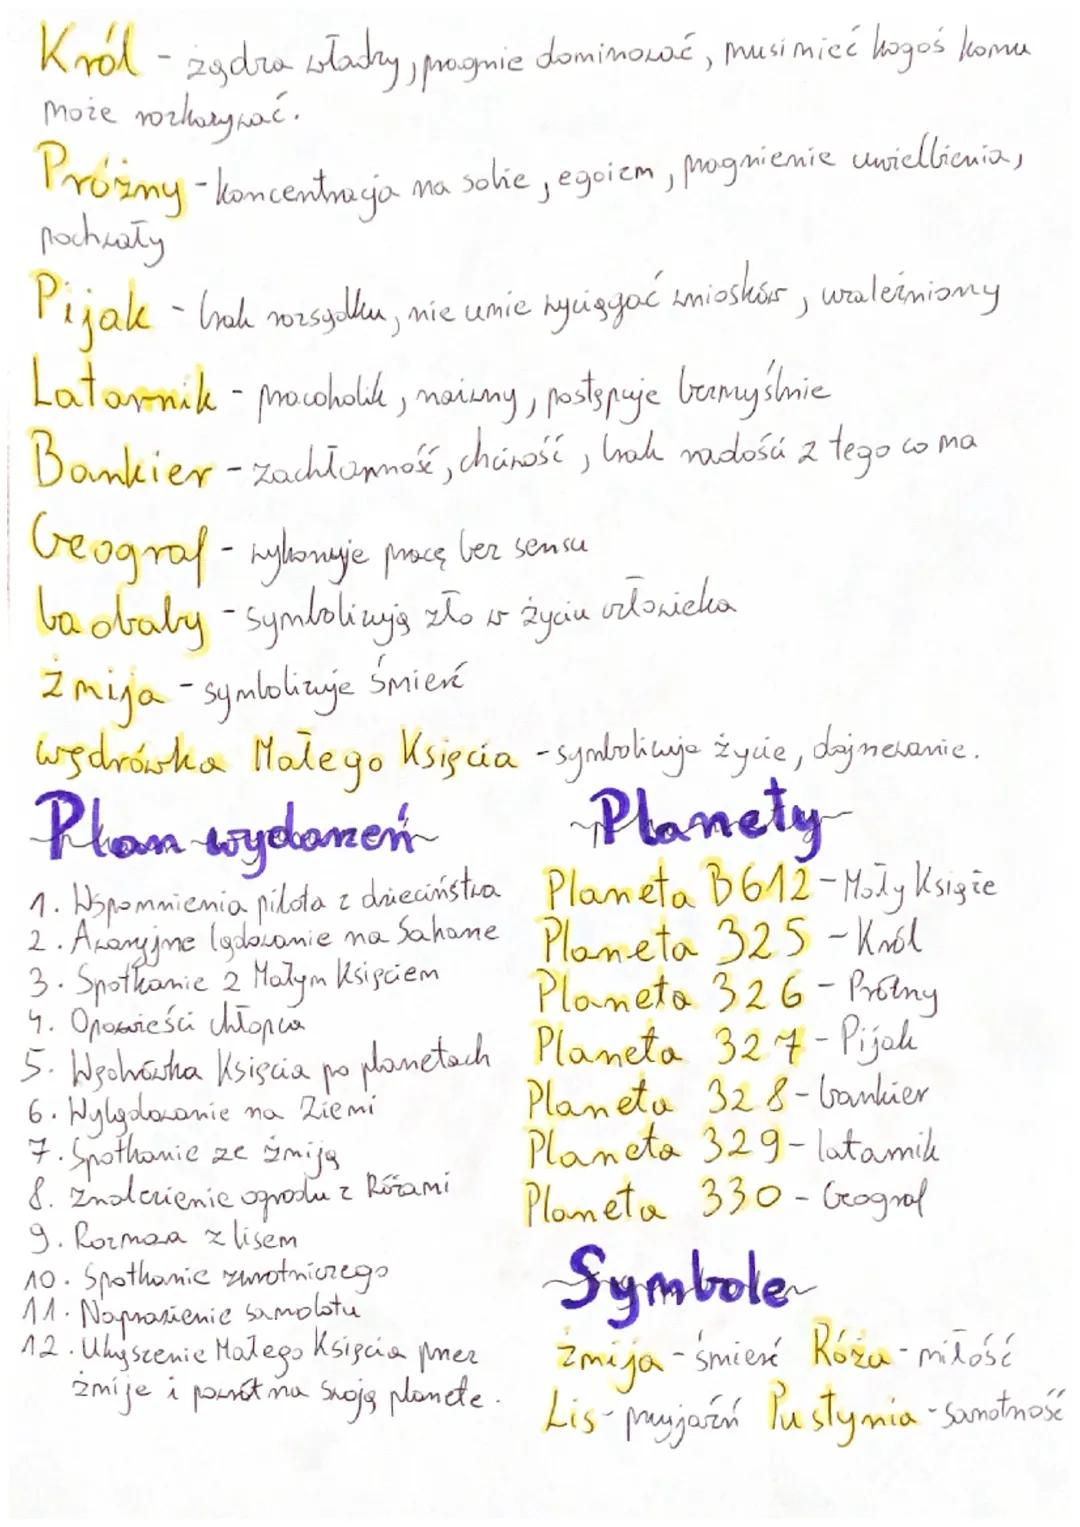 Król - żądza władzy, pragnie dominować, musi mieć kogoś komu
może rozkazywać.
Próżny - koncentracja na sobie, egoizm, pragnienie uwielbienia,
pochwały
Pijak - brak rozsądku, nie umie wyciągać wniosków, uzależniony
Latarnik - pracoholik, naiwny, postępuje bezmyślnie
Bankier - zachłanność, chciwość, brak radości z tego co ma
Geograf - wykonuje pracę bez sensu
baobaby - symbolizują zło w życiu człowieka
żmija - symbolizuje śmierć
wędrówka Małego Księcia - symbolizuje życie, dojrzewanie.
Plan wydarzeń
1. Wspomnienia pilota z dzieciństwa
2. Awaryjne lądowanie na Saharze
3. Spotkanie z Małym Księciem
4. Opowieści chłopca
5. Wędrówka Księcia po planetach
6. Wylądowanie na Ziemi
7. Spotkanie ze żmiją
8. Znalezienie ogrodu z Różami
9. Rozmowa z lisem
10. Spotkanie zwrotniczego
11. Naprawienie samolotu
12. Ukąszenie Małego Księcia przez
żmije i powrót na swoją planete.
Planety
Planeta B612 - Mały Książe
Planeta 325 - Król
Planeta 326 - Próżny
Planeta 327 - Pijak
Planeta 328 - bankier
Planeta 329 - latarnik
Planeta 330 - Geograf
Symbole
żmija - śmierć Róża - miłość
Lis - przyjaźń Pustynia - samotność